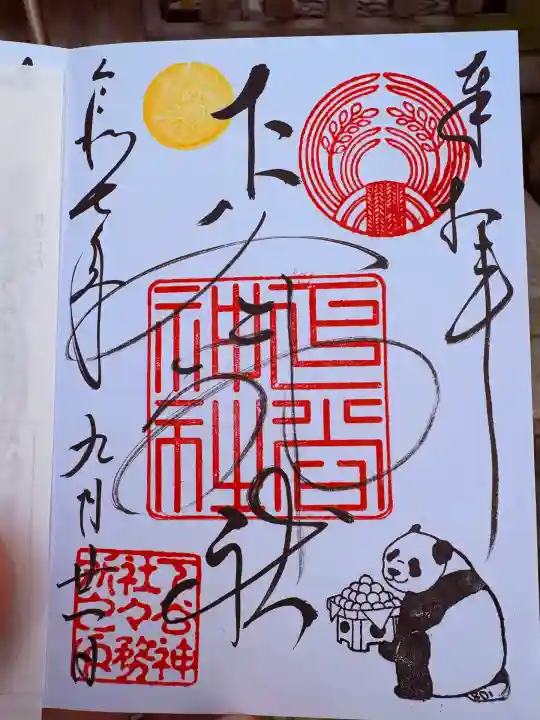 奉拝
下谷神社
下谷神社
令和七年九月廿一日
下谷神
社々務
所之印